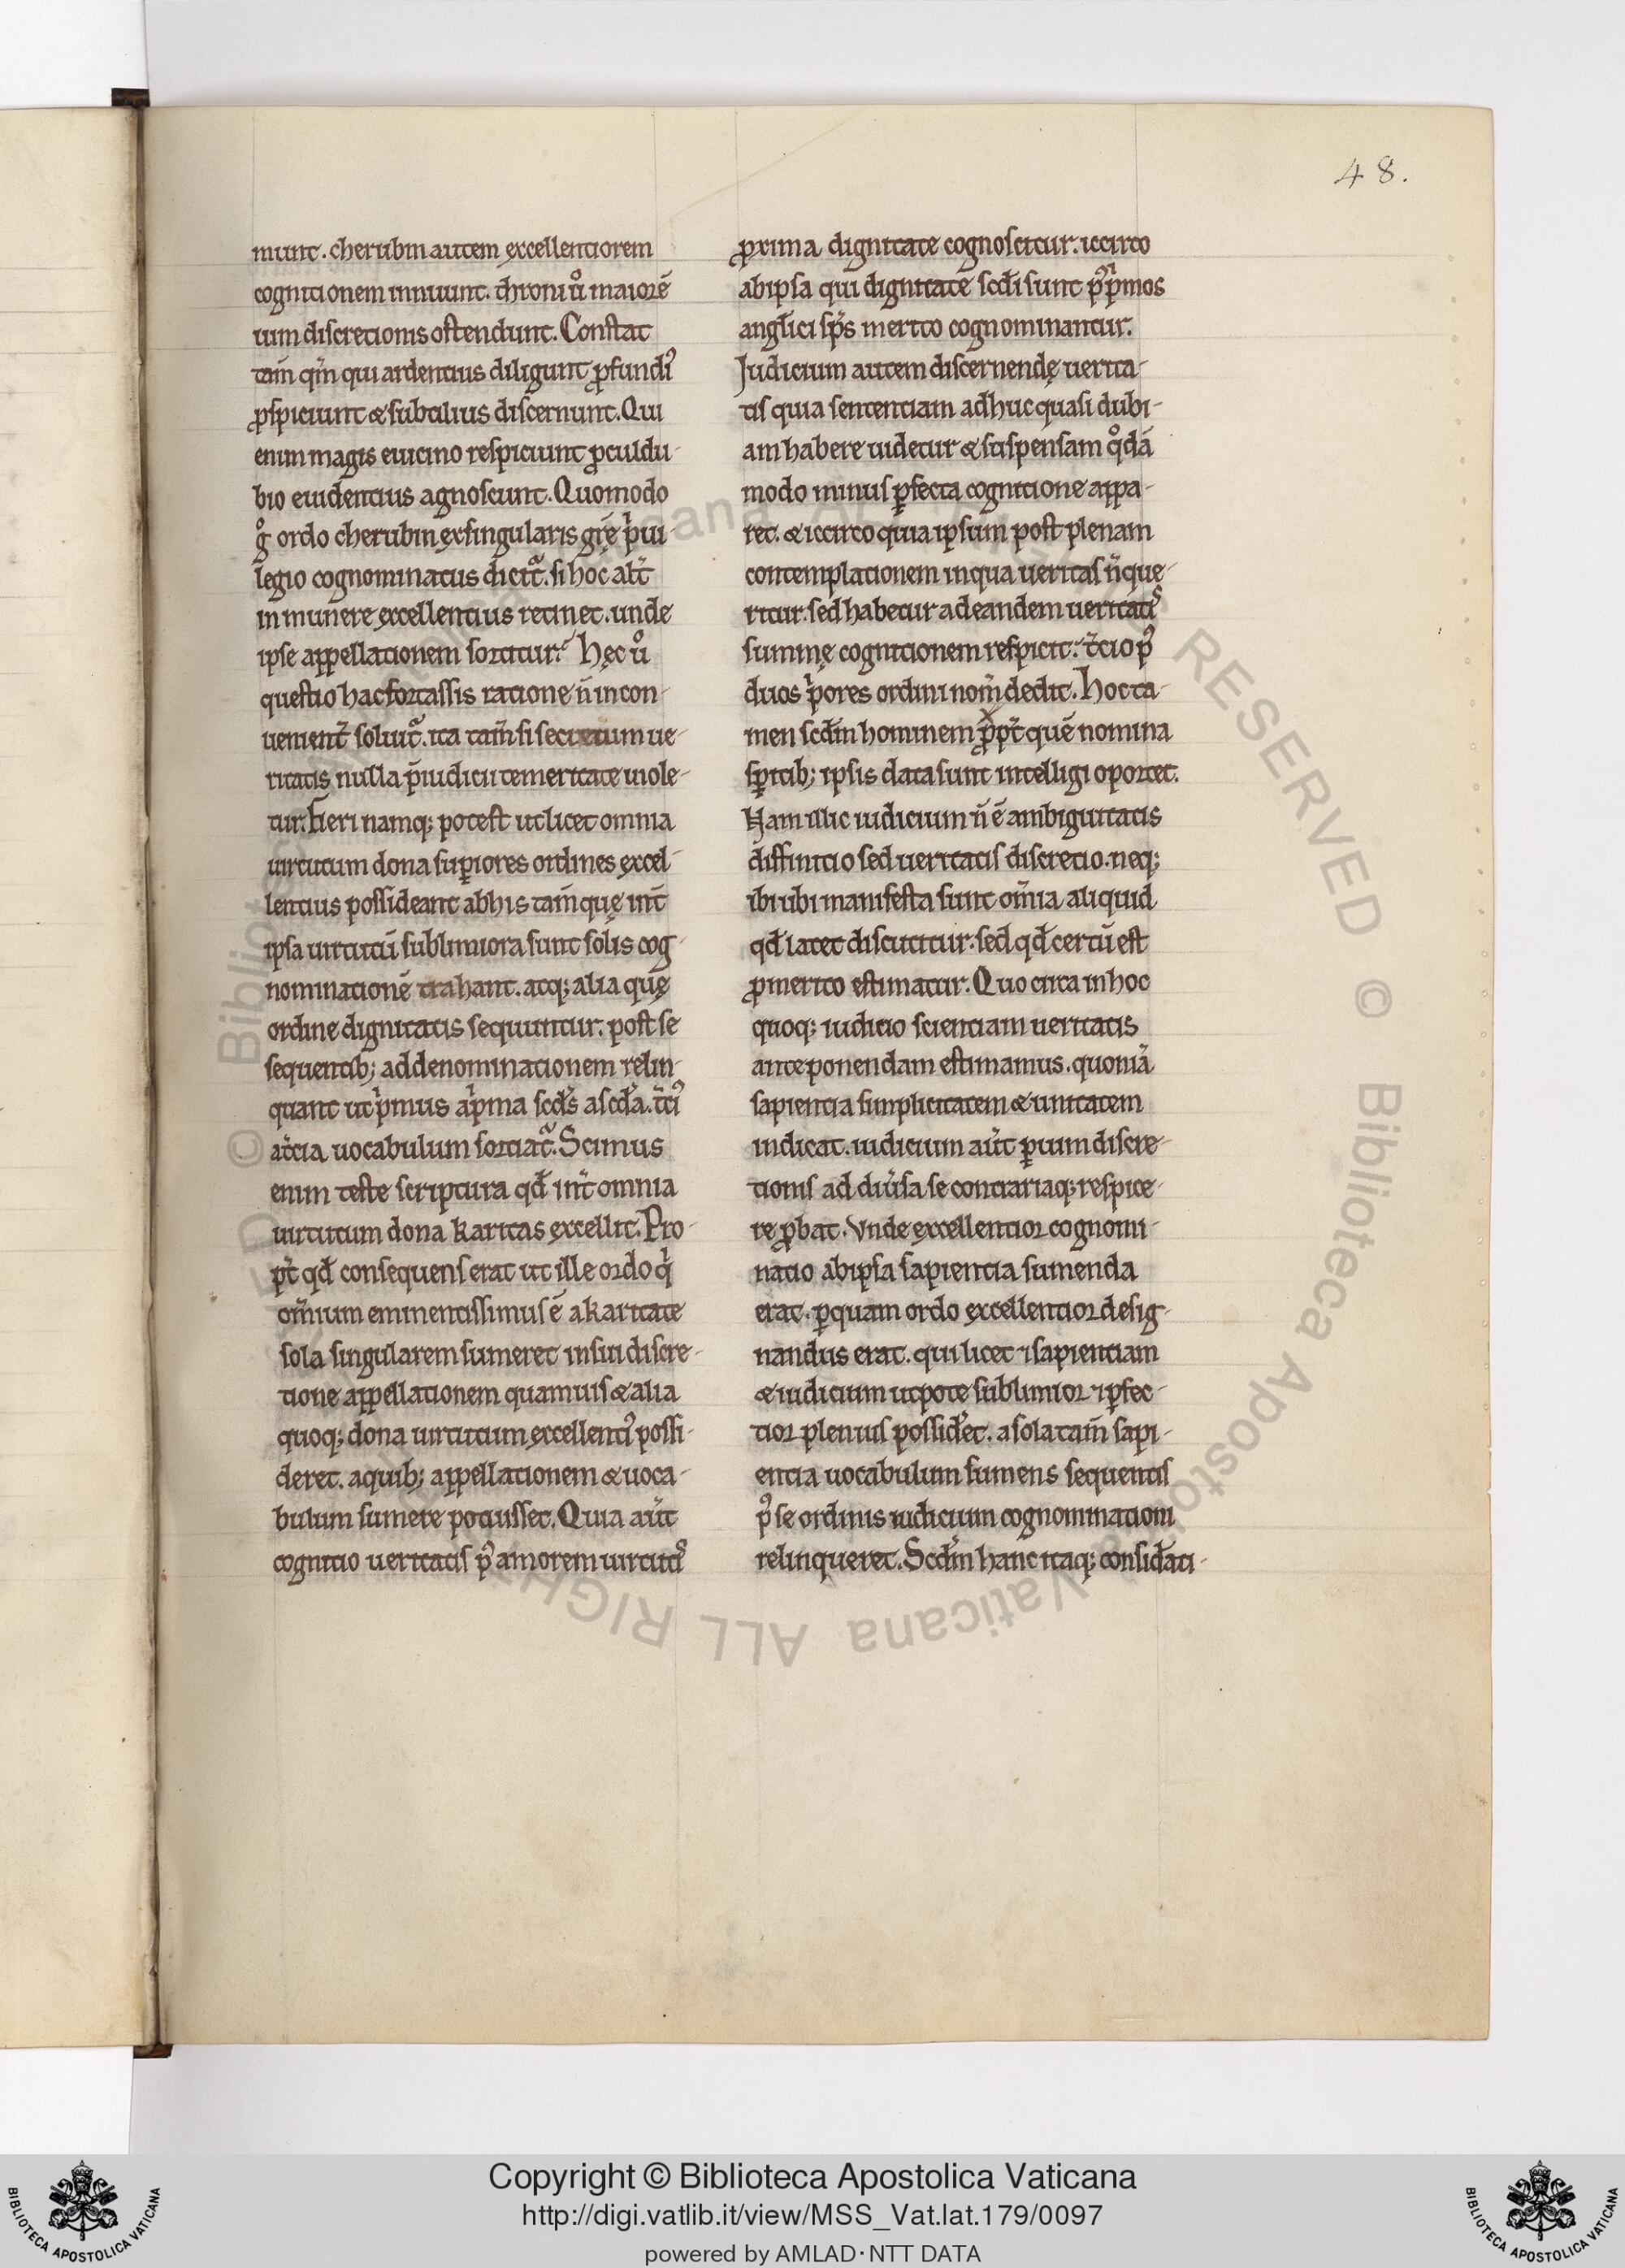 48.
munt. cherubin autem excellentiorem
cognitionem innuunt. throni ů maiorē
uim discretionis ostendunt. Constat
tam̄ qm̄ qui ardentius diligunt ꝓfundi᾽
ꝓspiciunt & subtilius discernunt. Qui
enim magis euicino respiciunt ꝓculdu-
bio euidentius agnoscunt. Quomodo
g̊ ordo cherubin ex singularis gr̄e p̓ui-
legio cognominatus dicit᷑. si hoc alt̄
in munere excellentius retinet. unde
ipse appellationem sortitur. Hęc ů
questio hac fortassis ratione n̄ incon-
uenient̄ soluit᷑. ita tam̄ si secretum ue-
ritatis nulla p̄iudicii temeritate uiole-
tur. Fieri namq; potest ut licet omnia
uirtutum dona suꝑiores ordines excel-
lentius possideant ab his tam̄ quę int̄
ipsa uirtutū sublimiora sunt solis cog-
nominationē trahant. atq; alia quę
ordine dignitatis sequuntur. post se
sequentib; ad denominationem relin-
quant ut p̓mus a p̓ma scd᾽s a scd᾽a. t̄ci᾽
a t̄cia uocabulum sortiat᷑. Scimus
enim teste scriptura qđ int̄ omnia
uirtutum dona karitas excellit. Pro-
pt̄ qđ consequens erat ut ille ordo q̓
om̄ium eminentissimus ē a karitate
sola singularem sumeret in sui discre-
tione appellationem quamuis & alia
quoq; dona uirtutum excellenti᾽ possi-
deret. a quib; appellationem & uoca-
bulum sumere potuisset. Quia aūt
cognitio ueritatis p᾽ amorem uirtuti᾽
ꝓxima dignitate cognoscitur. iccirco
ab ipsa qui dignitatē scđi sunt p᾽ p̓mos
angľici sp̄s merito cognominantur.
Judicium autem discernendę uerita-
tis quia sententiam adhuc quasi dubi-
am habere uidetur & suspensam q̊dā
modo minus ꝑfecta cognitione appa-
ret. & iccirco quia ipsum post plenam
contemplationem in qua ueritas n̄ quę-
ritur. sed habetur ad eandem ueritati᾽
summę cognitionem respicit. t̄cio p᾽
duos p̓ores ordini nom̄ dedit. Hoc ta-
men scđm hominem ꝓpt̄ quē nomina
spirit̾ib; ipsis data sunt intelligi oportet.
Nam illic iudicium n̄ ē ambiguitatis
diffinitio sed ueritatis discretio. neq;
ibi ubi manifesta sunt om̄ia aliquid
qđ latet discutitur. sed qđ certū est
ꝓ merito estimatur. Quo circa in hoc
quoq; iudicio scientiam ueritatis
anteponendam estimamus. quoniā
sapientia simplicitatem & unitatem
indicat. iudicium aūt ꝑ uim discre-
tionis ad diu᾽sa se contrariaq; respice-
re ꝓbat. Vnde excellentior cognomi-
natio ab ipsa sapientia sumenda
erat. ꝑ quam ordo excellentior desig-
nandus erat. qui licet ⁊ sapientiam
& iudicium utpote sublimior ⁊ ꝑfec-
tior plenius possid᾽et. a sola tam̄ sapi-
entia uocabulum sumens sequentis
p᾽ se ordinis iudicium cognominationi
relinqueret. Scđm hanc itaq; consid᾽ati-
Copyright © Biblioteca Apostolica Vaticana
http://digi.vatlib.it/view/MSS_Vat.lat.179/0097
powered by AMLAD·NTT DATA
BIBLIOTECA APOSTOLICA VATICANA
BIBLIOTECA APOSTOLICA VATICANA